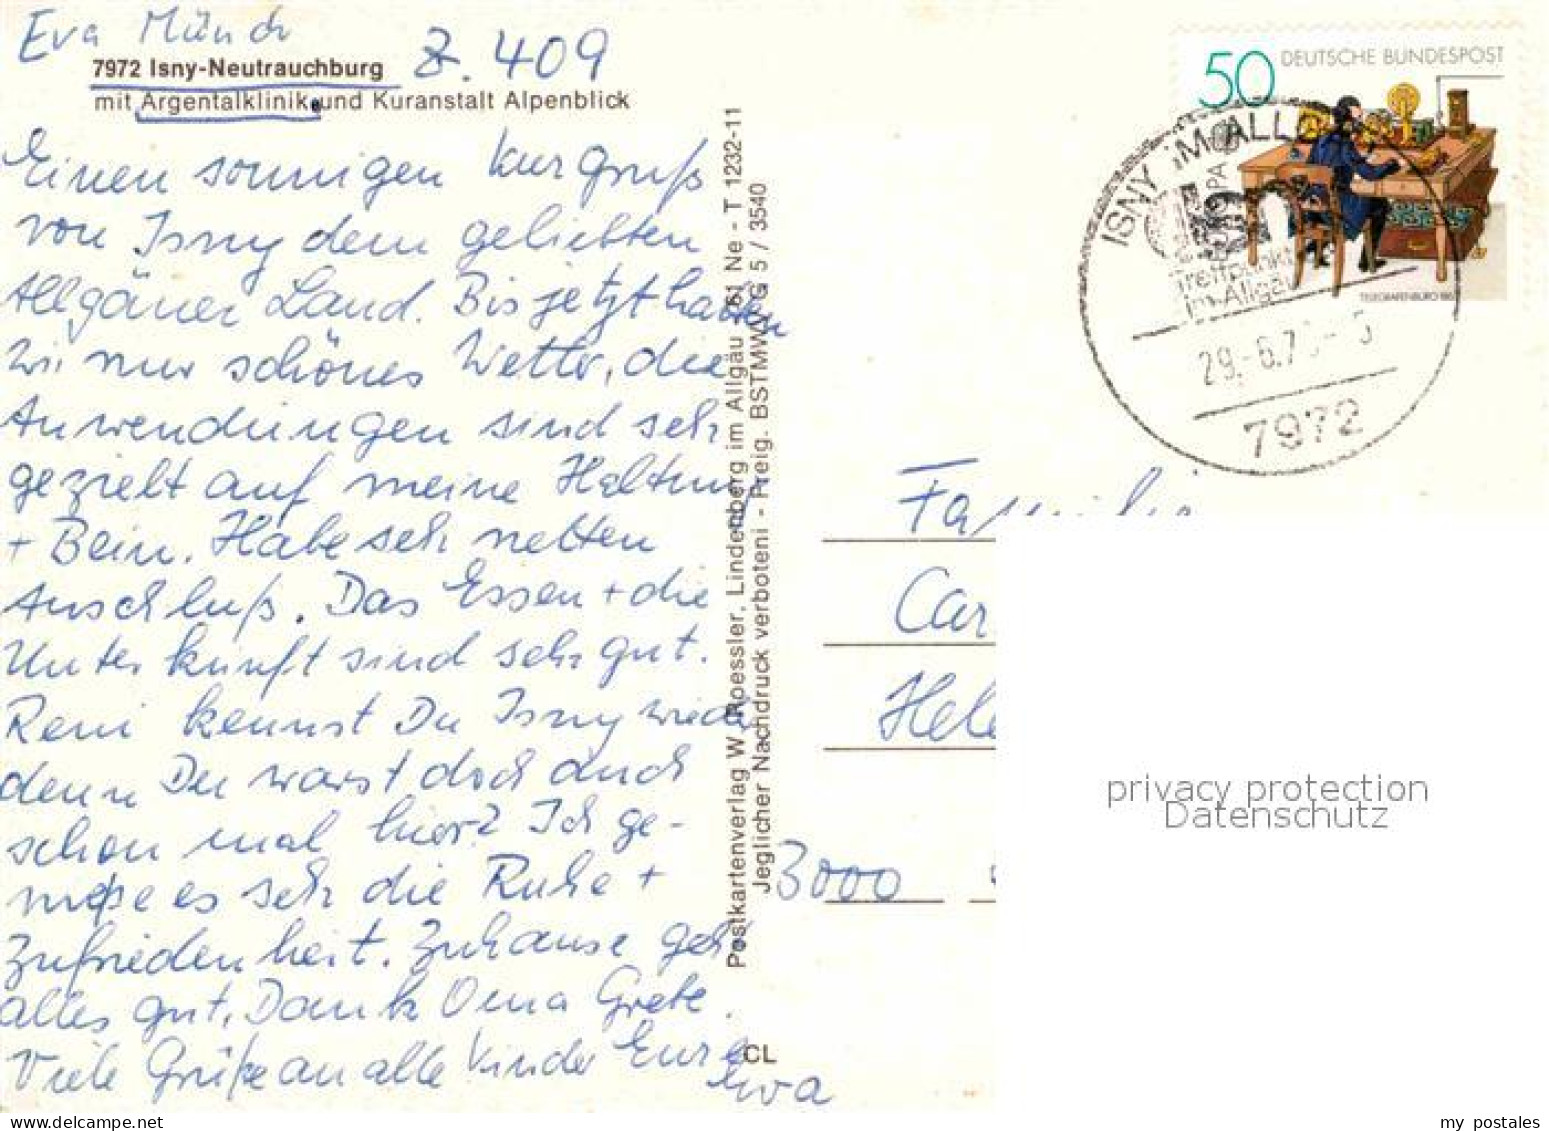 Eva Münch
Z. 409
7972 Isny-Neutrauchburg
mit Argentalklinik und Kuranstalt Alpenblick
Einen sonnigen Kurgruß
von Isny dem geliebten
Allgäuer Land. Bis jetzt hatten
wir nur schönes Wetter, die
Anwendungen sind sehr
gezielt auf meine Haltung
+ Bein. Habe sehr netten
Anschluß. Das Essen + die
Unterkunft sind sehr gut.
Reni kennst Du Isny wieder
denn Du warst doch auch
schon mal hier? Ich ge-
nieße es sehr die Ruhe +
Zufriedenheit. Zuhause geht
alles gut, Dank Oma Grete.
Viele Grüße an alle Kinder Eure
Eva
Postkartenverlag W. Roessler, Lindenberg im Allgäu / 61 Ne - T 1232-11
Jeglicher Nachdruck verboten! - Freig. BSTMWV G 5 / 3540
CL
50 DEUTSCHE BUNDESPOST
TELEGRAFENBÜRO
ISNY IM ALL
Treffpunkt
im Allgäu
29.-6.7
7972
Familie
Car
Hel
3000
privacy protection
Datenschutz
my postales